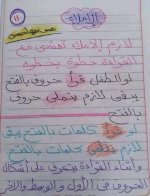 الإملاء
لازم الإملاء تمشي مع
القراءة خطوة بخطوة
لو الطفل قرأ حروف بالفتح
يبقى لازم يتملى حروف
بالفتح
لو قرأ كلمات بالفتح يبقى
كلمات بالفتح
وأثناء القراءة يتعرف على أشكال
الحروف في الأول والوسط والآخر